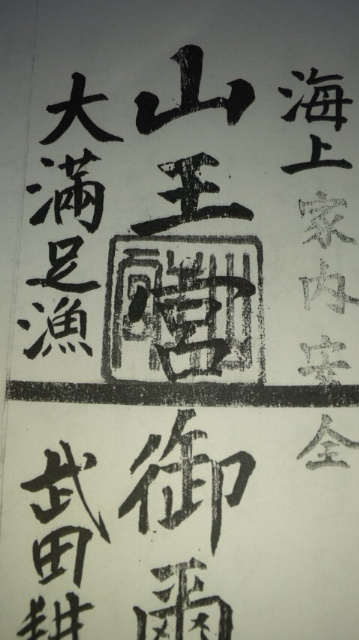 海上家内安全
山王宮御璽
大満足漁
武田耕